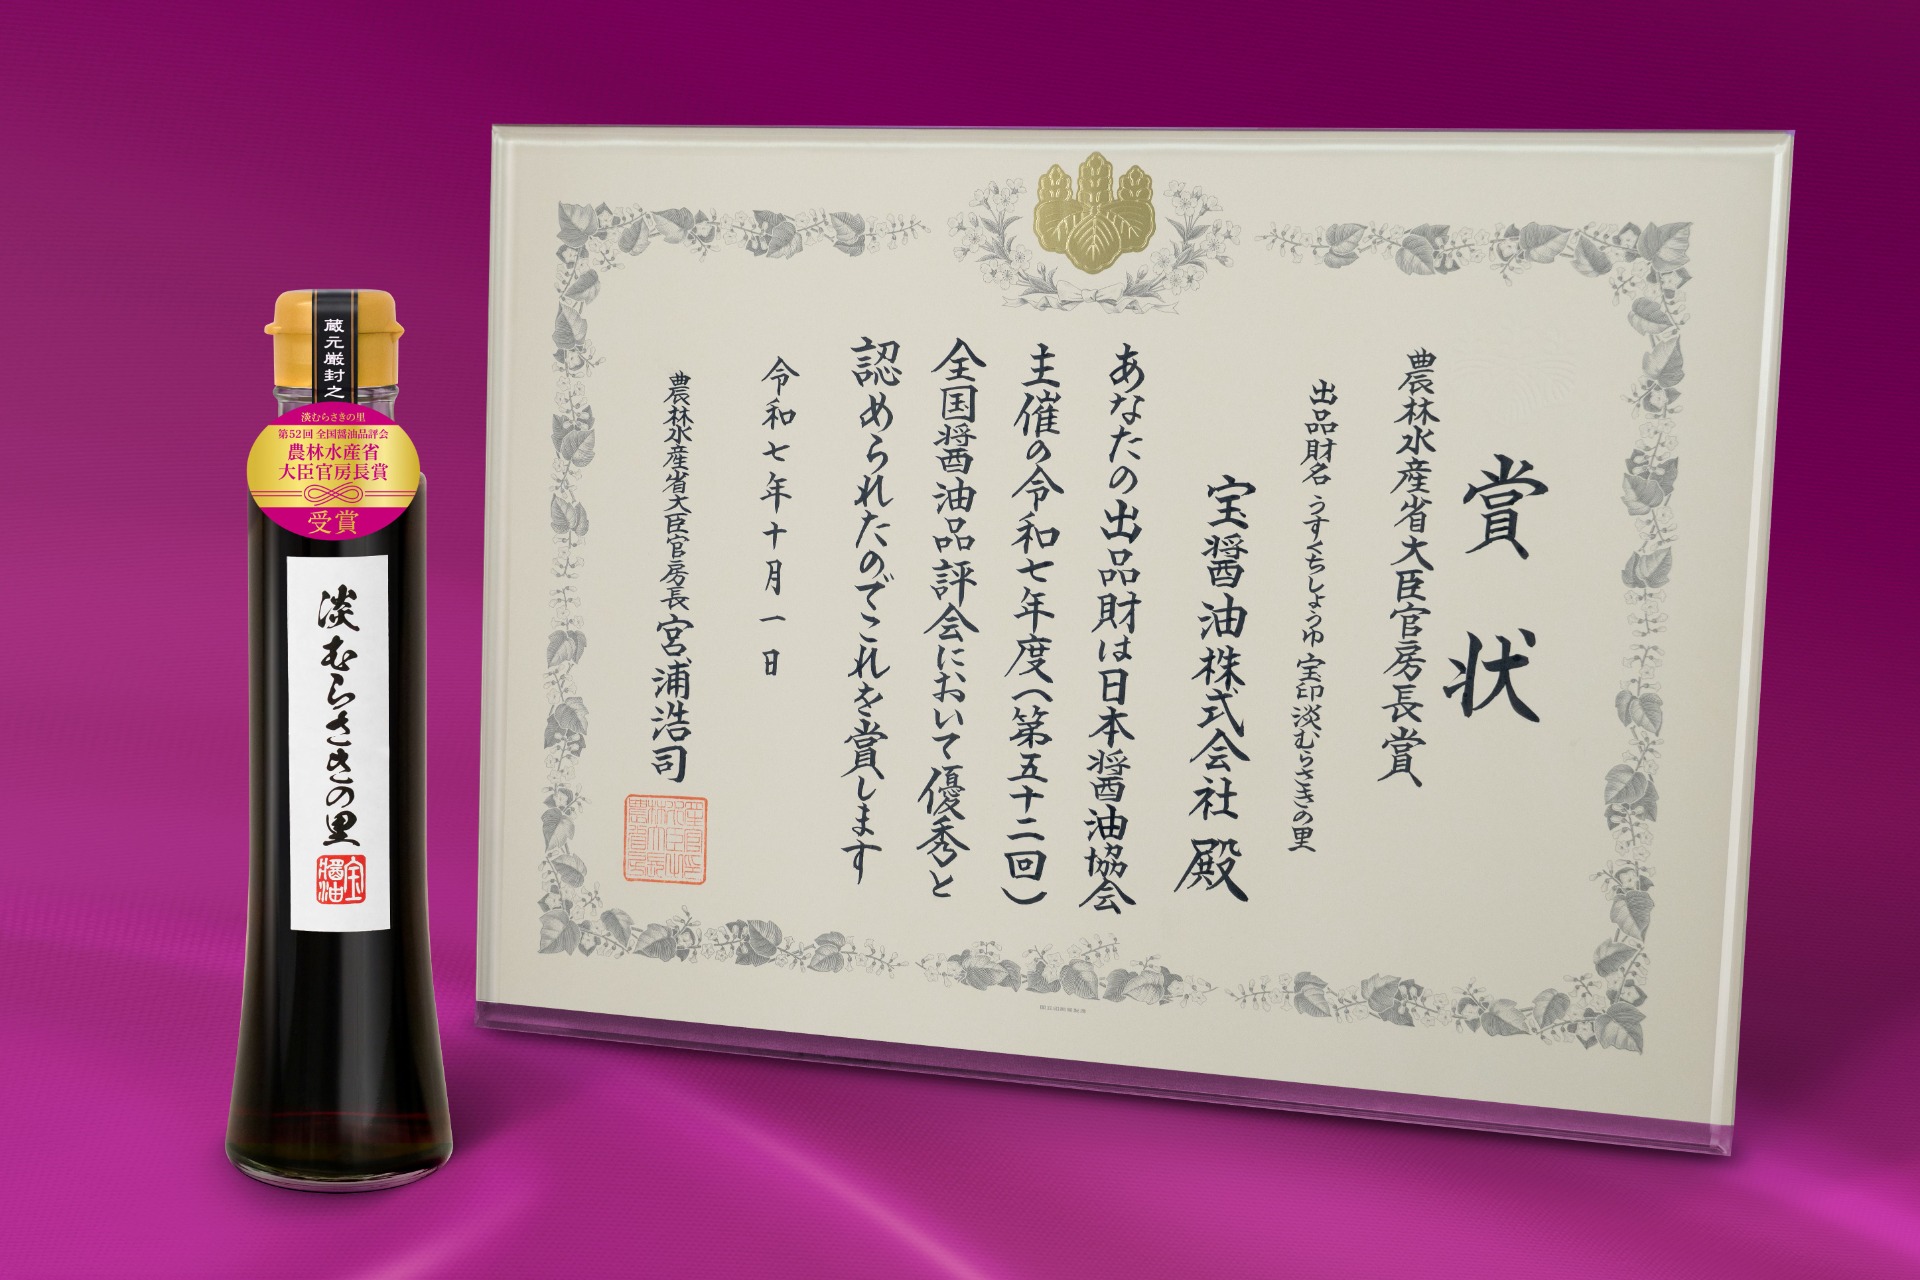 蔵元厳封之
淡むらさきの里
第52回 全国醤油品評会
農林水産省
大臣官房長賞
受賞
淡むらさきの里
宝醤油
賞状
農林水産省大臣官房長賞
出品財名 うすくちしょうゆ 宝印淡むらさきの里
宝醤油株式会社 殿
あなたの出品財は日本醤油協会
主催の令和七年度(第五十二回)
全国醤油品評会において優秀と
認められたのでこれを賞します
令和七年十月一日
農林水産省大臣官房長 宮浦浩司